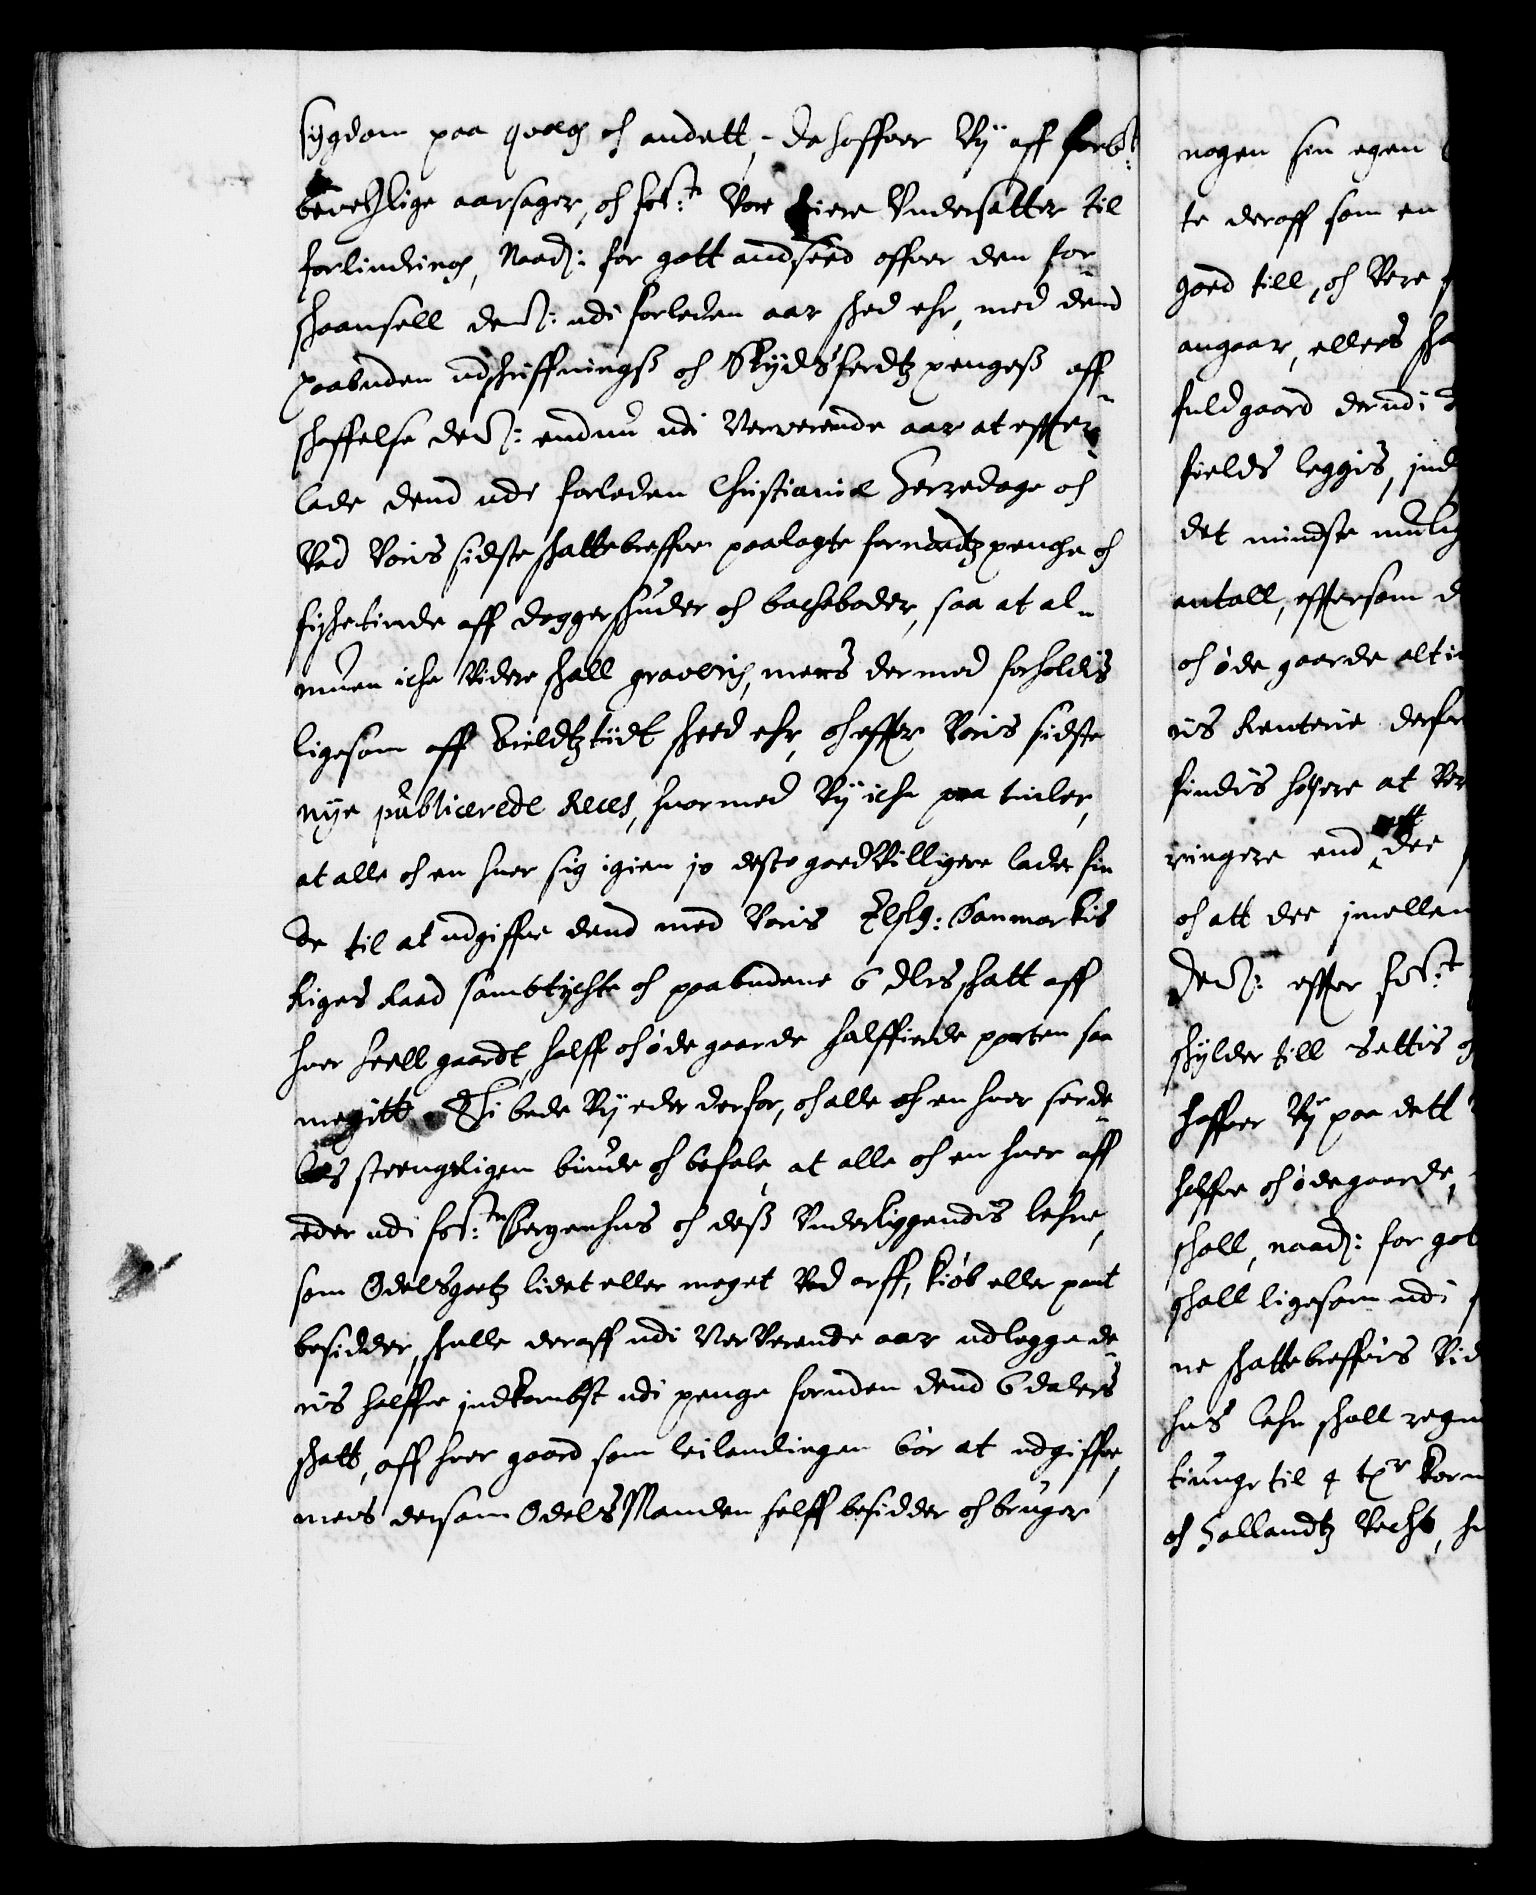 sygdom paa qvæg och andett, da hoffver Vy aff forbt:
bevechlige aarsager, och forne: Vore kiere Undersatter til
forlindring, Naad: for gott andseed offver den for¬
skaansell dem: udi forleden aar skeed ehr, med dend
paabuden udskriffningß och Skydsferdtz pengeß aff¬
skaffelse dem: endnu udi Ververende aar at effter¬
lade dend udi forleden Christianiæ Herredage och
Ved Voris sidste skattebreffve paalagte fornoedtz penge och
fisketiende aff doggerskuder och backebaader, saa at al¬
muen iche Videre skall graveris, mens dermed forholdis
ligesom aff Arildtz tiidt skeed ehr, och effter Voris sidste
nye publicerede Reces, hvormed Vy iche paa tviler,
at alle och en hver sig igien jo desto goedVilligere lader fin
de til at udgiffve dend med Voris Elsg: Danmarkis
Riges Raad sambtychte och paabudene 6 dlrs skatt aff
hver heell gaardt, halff och øde gaarde halffierde parten saa
megitt. Thi bede Vy eder derfor, och alle och en hver serde¬
les strengeligen biude och befale, at alle och en hver aff
eder udi forne: Bergenhus och deß Underliggendis lehne,
som Odelsgoetz lidet eller meget Ved arff, kiøb eller pant
besidder, skulle deraff udi VerVerende aar udlegge de¬
ris halffve jndkombst udi penge foruden dend 6 dalers
skatt, aff hver gaard som leilendingen bør at udgiffve,
mens dersom OdelsManden selff besidder och bruger
nogen sin egen
te deraff som en
goed till, och Vere
angaar, ellers ska
fuldgaard derudi
fields leggis, jnd
det mindste mulig
antall, effersom d
och øde gaarde alt i
ris Renterie derfor
findis høyere at Ver
ringere end ett dee
och att dee jmellem
dem: effter forne:
skylder till settis och
haffver Vy paa dett
halffve och ødegaarde,
skall, naad: for got
skall ligesom udi
ne skattebreffvis Vid
hus lehn skall regn
tiunge til 4 tdr korn
och Hallandtz Vecht,